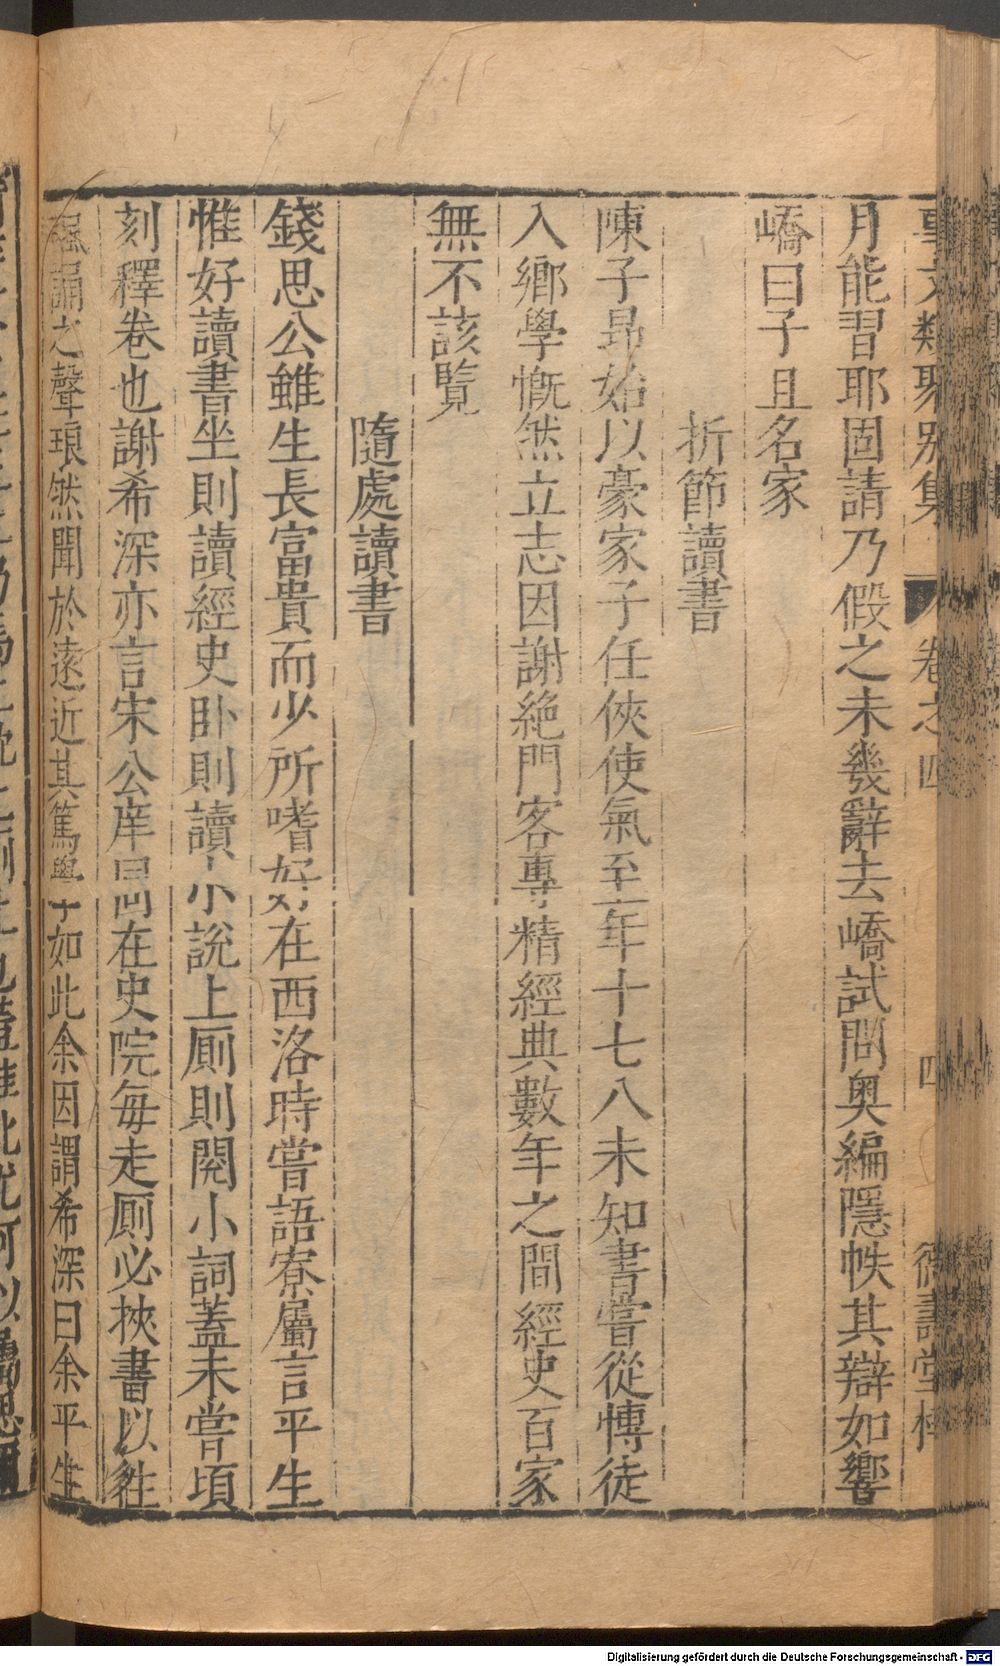 事文類聚別集 卷之四 四 德壽堂梓
月能習耶固請乃假之未幾辭去嶠試問奥編隱帙其辯如響
嶠曰子且名家
折節讀書
陳子昂始以豪家子任俠使氣至年十七八未知書嘗從博徒
入鄉學慨然立志因謝絶門客專精經典數年之間經史百家
無不該覧
隨處讀書
錢思公雖生長富貴而少所嗜好在西洛時嘗語寮屬言平生
惟好讀書坐則讀經史卧則讀小說上厠則閱小詞蓋未嘗頃
刻釋卷也謝希深亦言宋公庠同在史院每走厠必挾書以徃
諷誦之聲琅然聞於遠近其篤學如此余因謂希深曰余平生
Digitalisierung gefördert durch die Deutsche Forschungsgemeinschaft - DFG